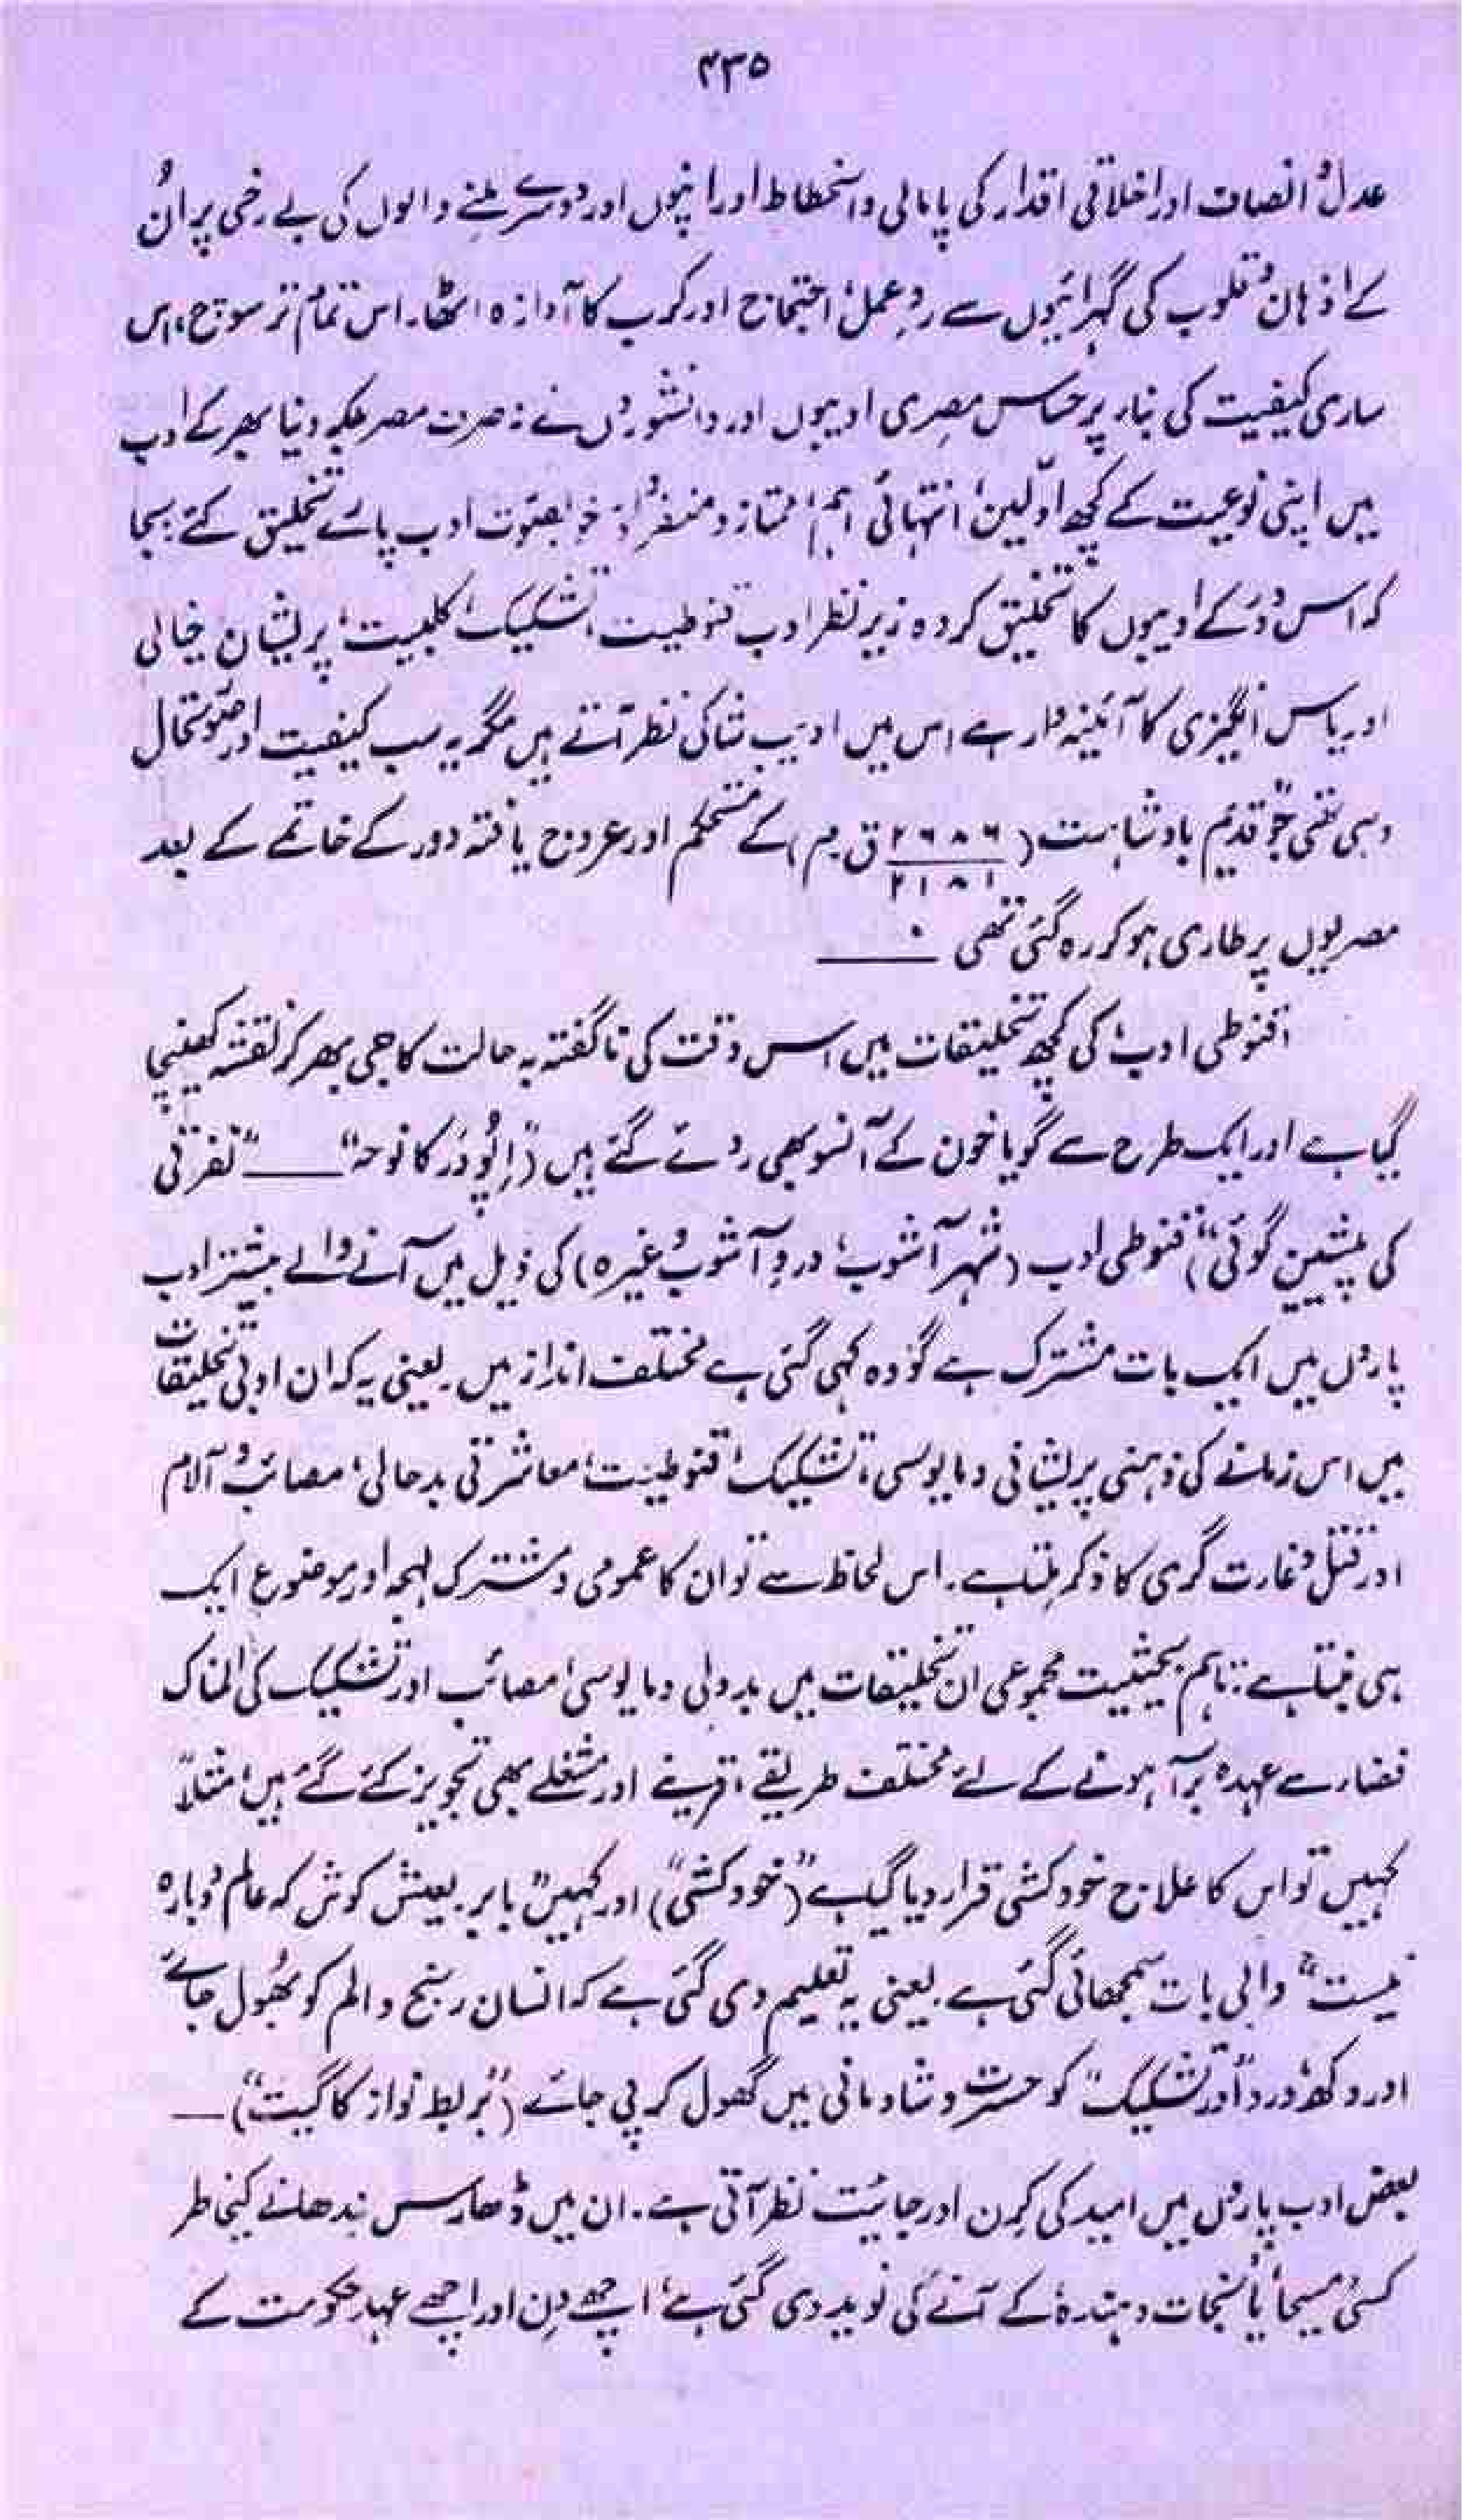 ۴۳۵
عدل و انصاف اور اخلاقی اقدار کی پامالی و انحطاط اور اپنوں اور دوسرے ملنے والوں کی بے رخی پر ان
کے اذہان و قلوب کی گہرائیوں سے ردِ عمل، احتجاج اور کرب کا آوازہ اٹھا۔ اس تمام تر سوچ، اس
ساری کیفیت کی بناء پر حساس مصری ادیبوں اور دانشوروں نے نہ صرف مصر بلکہ دنیا بھر کے ادب
میں اپنی نوعیت کے کچھ اولین، انتہائی اہم، ممتاز و منفرد اور خوبصورت ادب پارے تخلیق کئے۔ بجا
کہ اس دور کے ادیبوں کا تخلیق کردہ زیرِ نظر ادب قنوطیت، تشکیک، کلبیت، پریشان خیالی
اور یاس انگیزی کا آئینہ دار ہے اس میں ادیب شاکی نظر آتے ہیں مگر یہ سب کیفیت اور صورتحال
وہی تھی جو قدیم بادشاہت (۲۶۸۶/۲۱۸۱ ق۔م) کے مستحکم اور عروج یافتہ دور کے خاتمے کے بعد
مصریوں پر طاری ہو کر رہ گئی تھی ۔ ——
"قنوطی ادب" کی کچھ تخلیقات میں اس وقت کی ناگفتہ بہ حالت کا جی بھر کر نقشہ کھینچا
گیا ہے اور ایک طرح سے گویا خون کے آنسو بھی روئے گئے ہیں ("اپوور کا نوحہ" —— "نفرتی
کی پیشین گوئی") قنوطی ادب (شہر آشوب، دردِ آشوب وغیرہ) کی ذیل میں آنے والے بیشتر ادب
پاروں میں ایک بات مشترک ہے گو وہ کہی گئی ہے مختلف انداز میں۔ یعنی یہ کہ ان ادبی تخلیقات
میں اس زمانے کی ذہنی پریشانی و مایوسی، تشکیک، قنوطیت، معاشرتی بدحالی، مصائب و آلام
اور قتل و غارت گری کا ذکر ملتا ہے۔ اس لحاظ سے تو ان کا عمومی و مشترک لہجہ اور موضوع ایک
ہی بنتا ہے۔ تاہم بحیثیت مجموعی ان تخلیقات میں بددلی و مایوسی، مصائب اور تشکیک کی المناک
فضاء سے عہدہ برآ ہونے کے لئے مختلف طریقے، قرینے اور مشغلے بھی تجویز کئے گئے ہیں، مثلاً
کہیں تو اس کا علاج خودکشی قرار دیا گیا ہے ("خودکشی") اور کہیں "بابر بعیش کوش کہ عالم دوبارہ
نیست" والی بات سمجھائی گئی ہے۔ یعنی یہ تعلیم دی گئی ہے کہ انسان رنج و الم کو بھول جائے
اور دکھ، درد اور "تشکیک" کو مسرت و شادمانی میں گھول کر پی جائے ("بربط نواز کا گیت") —
بعض ادب پاروں میں امید کی کرن اور رجائیت نظر آتی ہے۔ ان میں ڈھارس بندھانے کیخاطر
کسی مسیحا یا نجات دہندہ کے آنے کی نوید دی گئی ہے، اچھے دن اور اچھے عہدِ حکومت کے